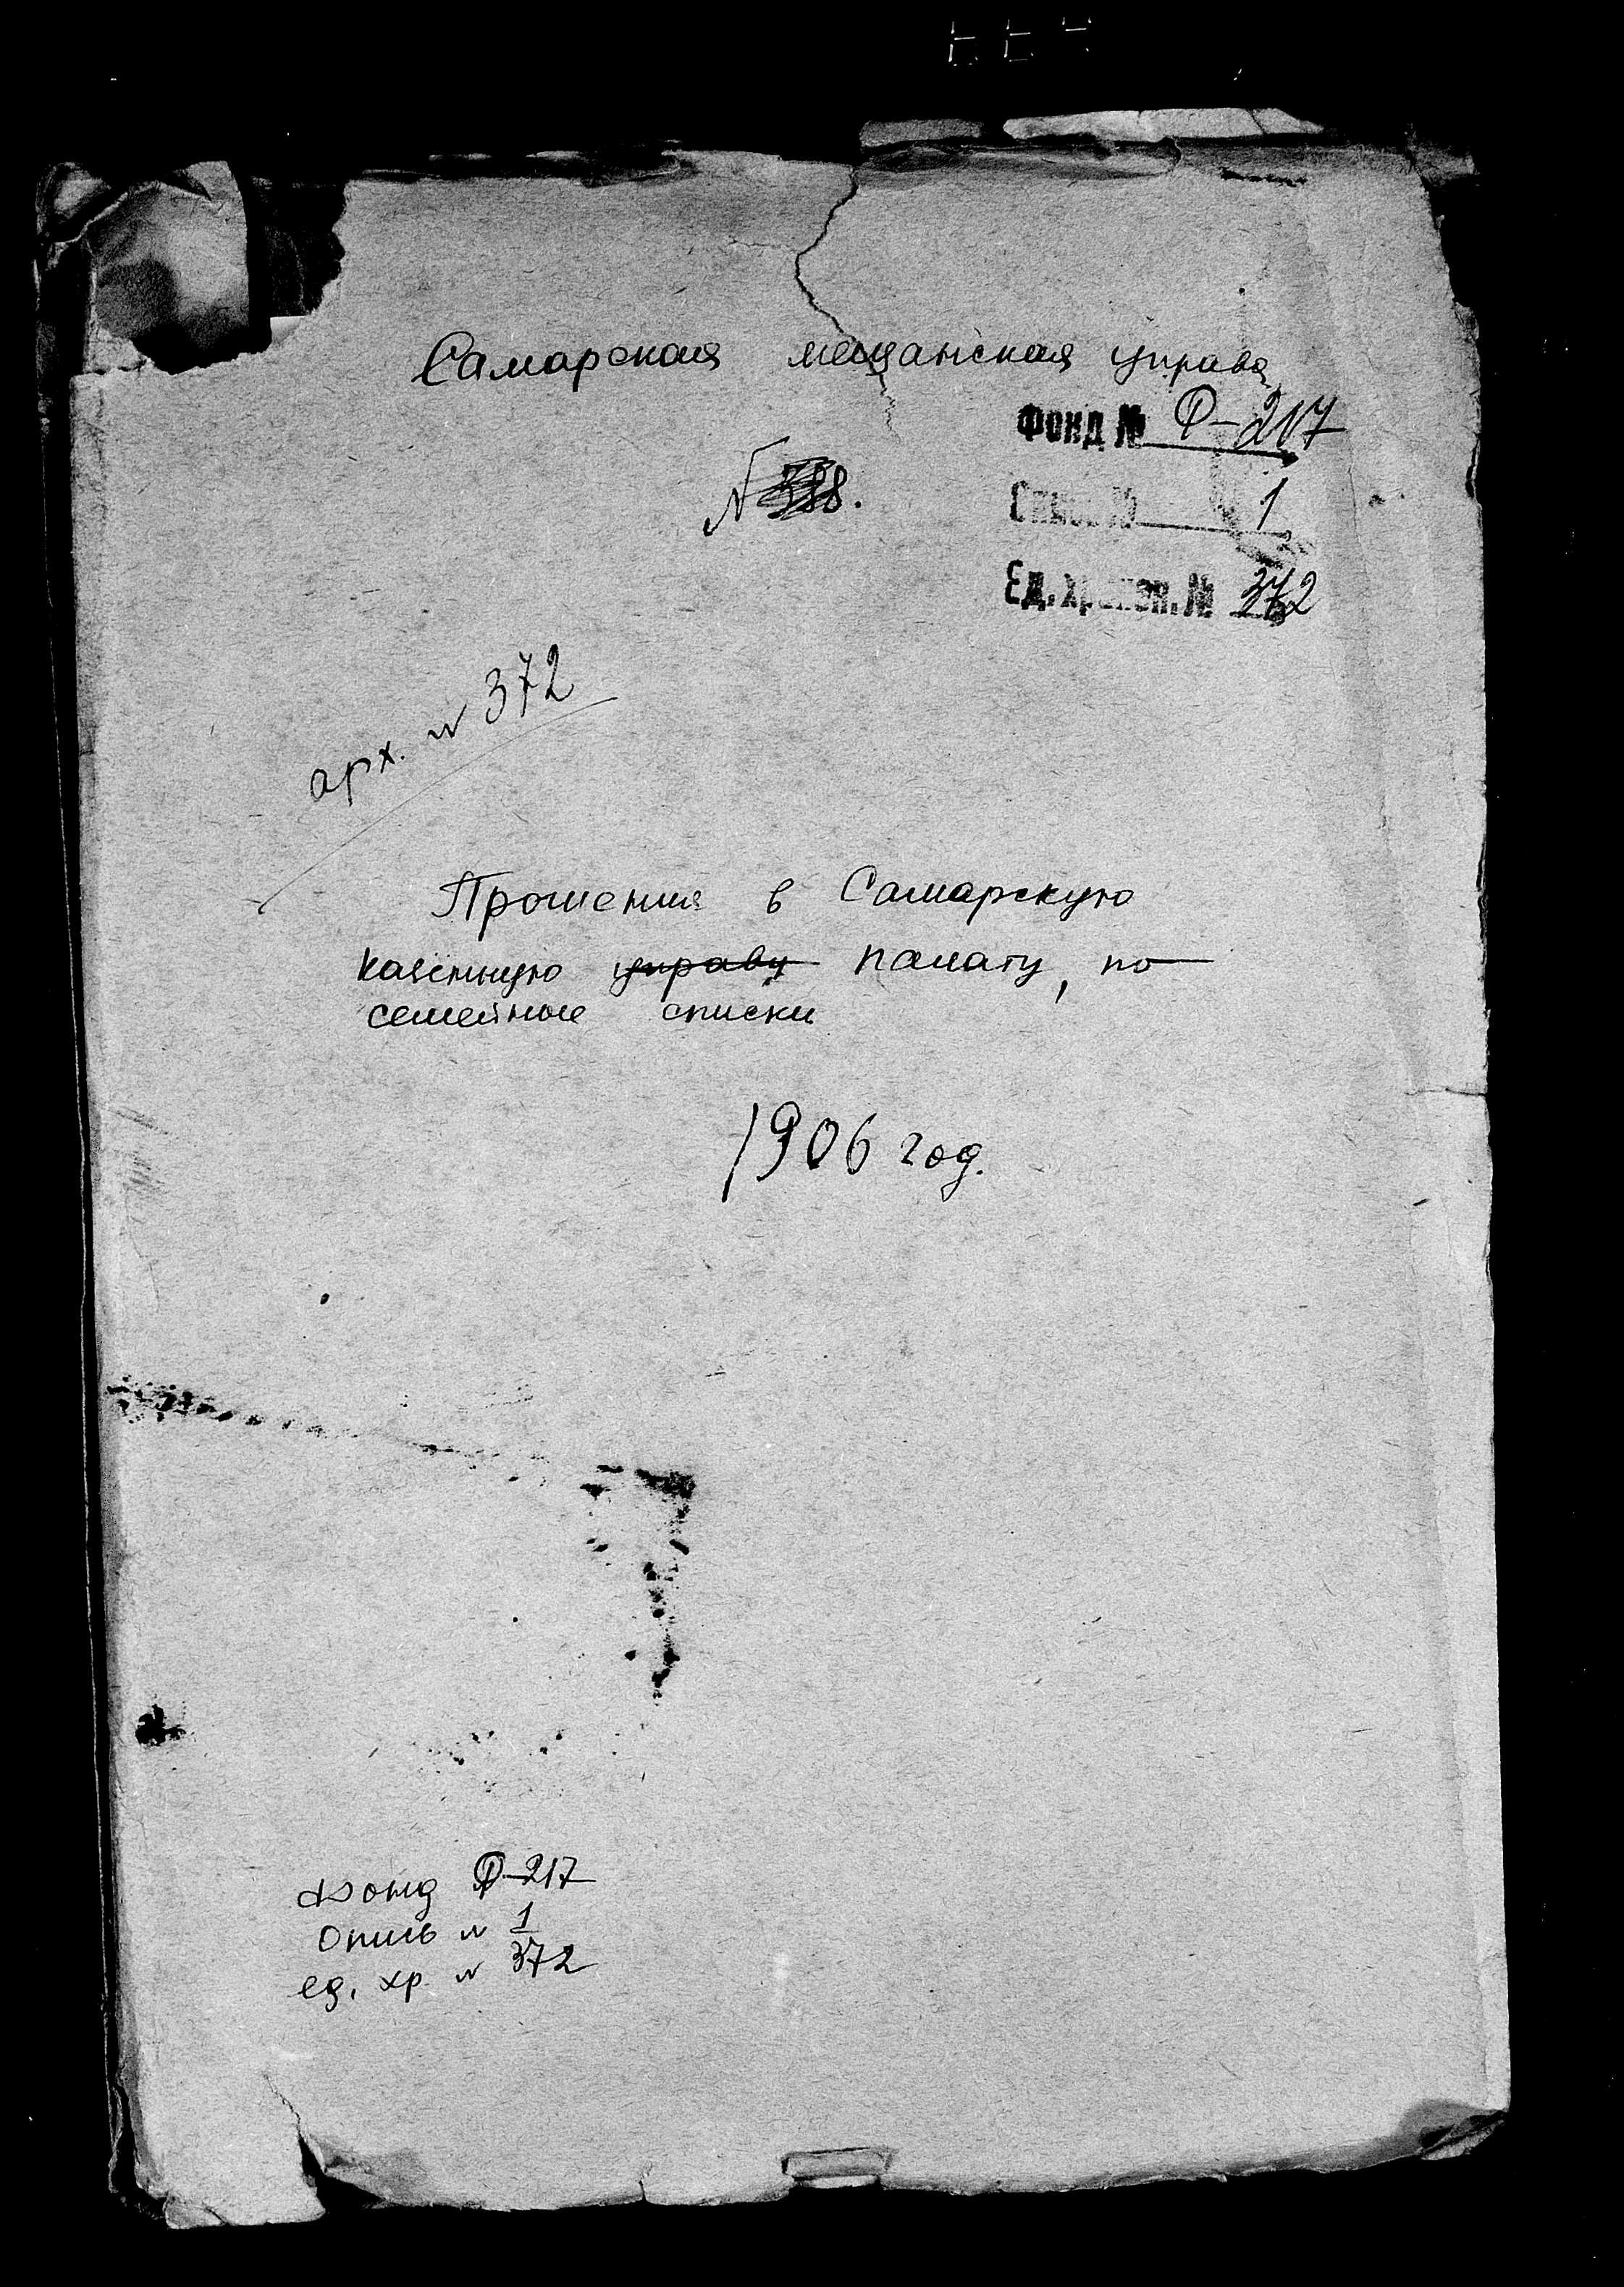 Самарская мещанская управа
Фонд № Ф-217
№ 388.
1
Ед. хранен. № 372
арх. № 372
Прошения в Самарскую
казенную управу палату, по-
семейные списки
1906 год.
Фонд Ф-217
Опись № 1
ед. хр. № 372